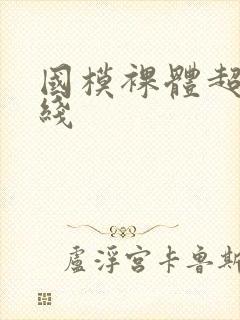 國模裸體超
綫
盧浮宮卡魯斯